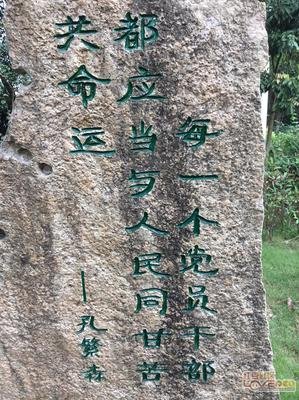 每一个党员干部
都应当与人民同甘苦
共命运
—孔繁森